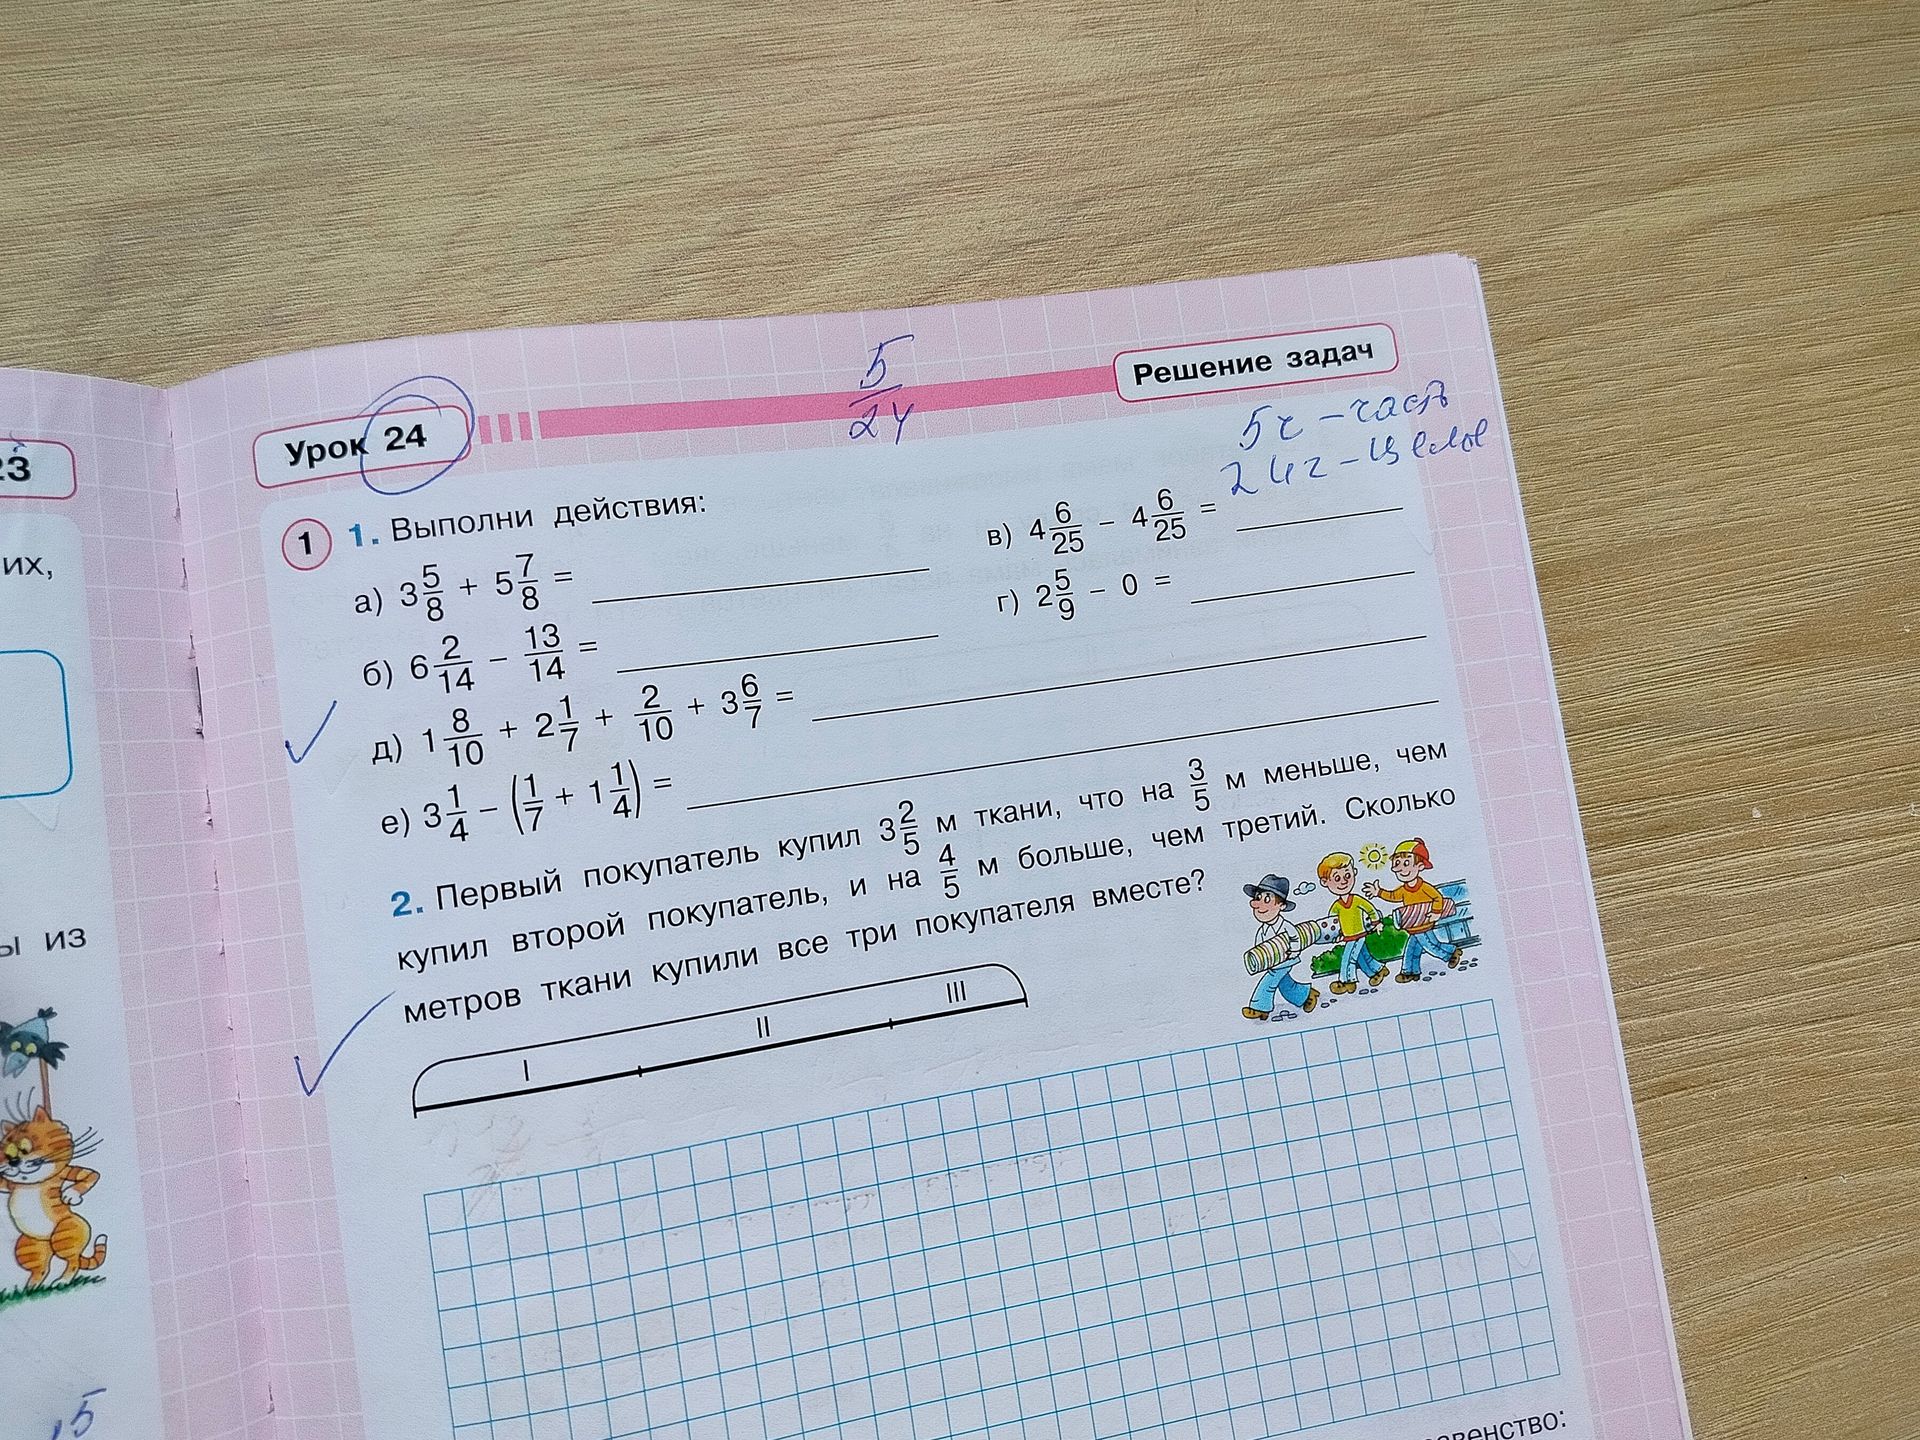 23
их,
ы из
,5
5/24
Урок 24
Решение задач
5ч - часть
24ч - целое
1 1. Выполни действия:
а) 3 5/8 + 5 7/8 =
в) 4 6/25 - 4 6/25 =
б) 6 2/14 - 13/14 =
г) 2 5/9 - 0 =
д) 1 8/10 + 2 1/7 + 2/10 + 3 6/7 =
е) 3 1/4 - (1/7 + 1 1/4) =
2. Первый покупатель купил 3 2/5 м ткани, что на 3/5 м меньше, чем
купил второй покупатель, и на 4/5 м больше, чем третий. Сколько
метров ткани купили все три покупателя вместе?
I II III